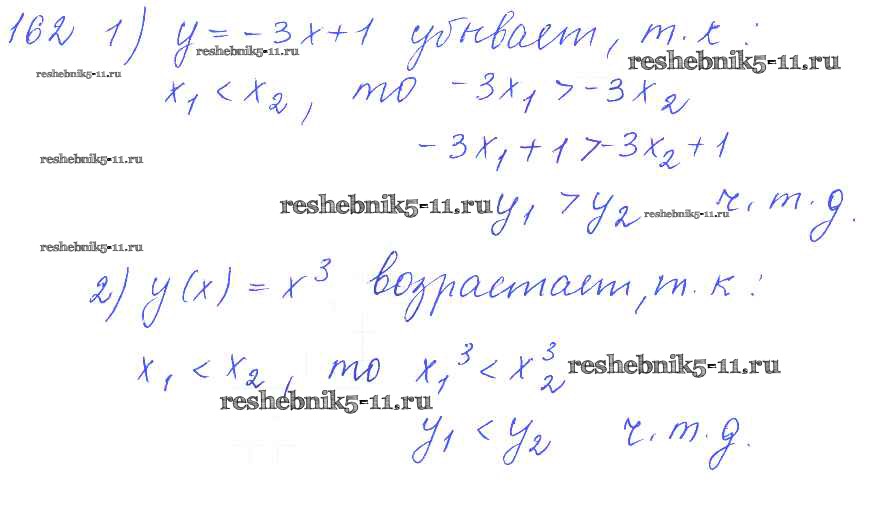 162 1) y = -3x+1 убывает, т.к:
reshebnik5-11.ru
reshebnik5-11.ru
reshebnik5-11.ru
x₁ < x₂, то -3x₁ > -3x₂
-3x₁+1 > -3x₂+1
reshebnik5-11.ru
reshebnik5-11.ru y₁ > y₂ reshebnik5-11.ru ч.т.д.
reshebnik5-11.ru
2) y(x) = x³ возрастает, т.к:
x₁ < x₂, то x₁³ < x₂³ reshebnik5-11.ru
reshebnik5-11.ru
y₁ < y₂ ч.т.д.